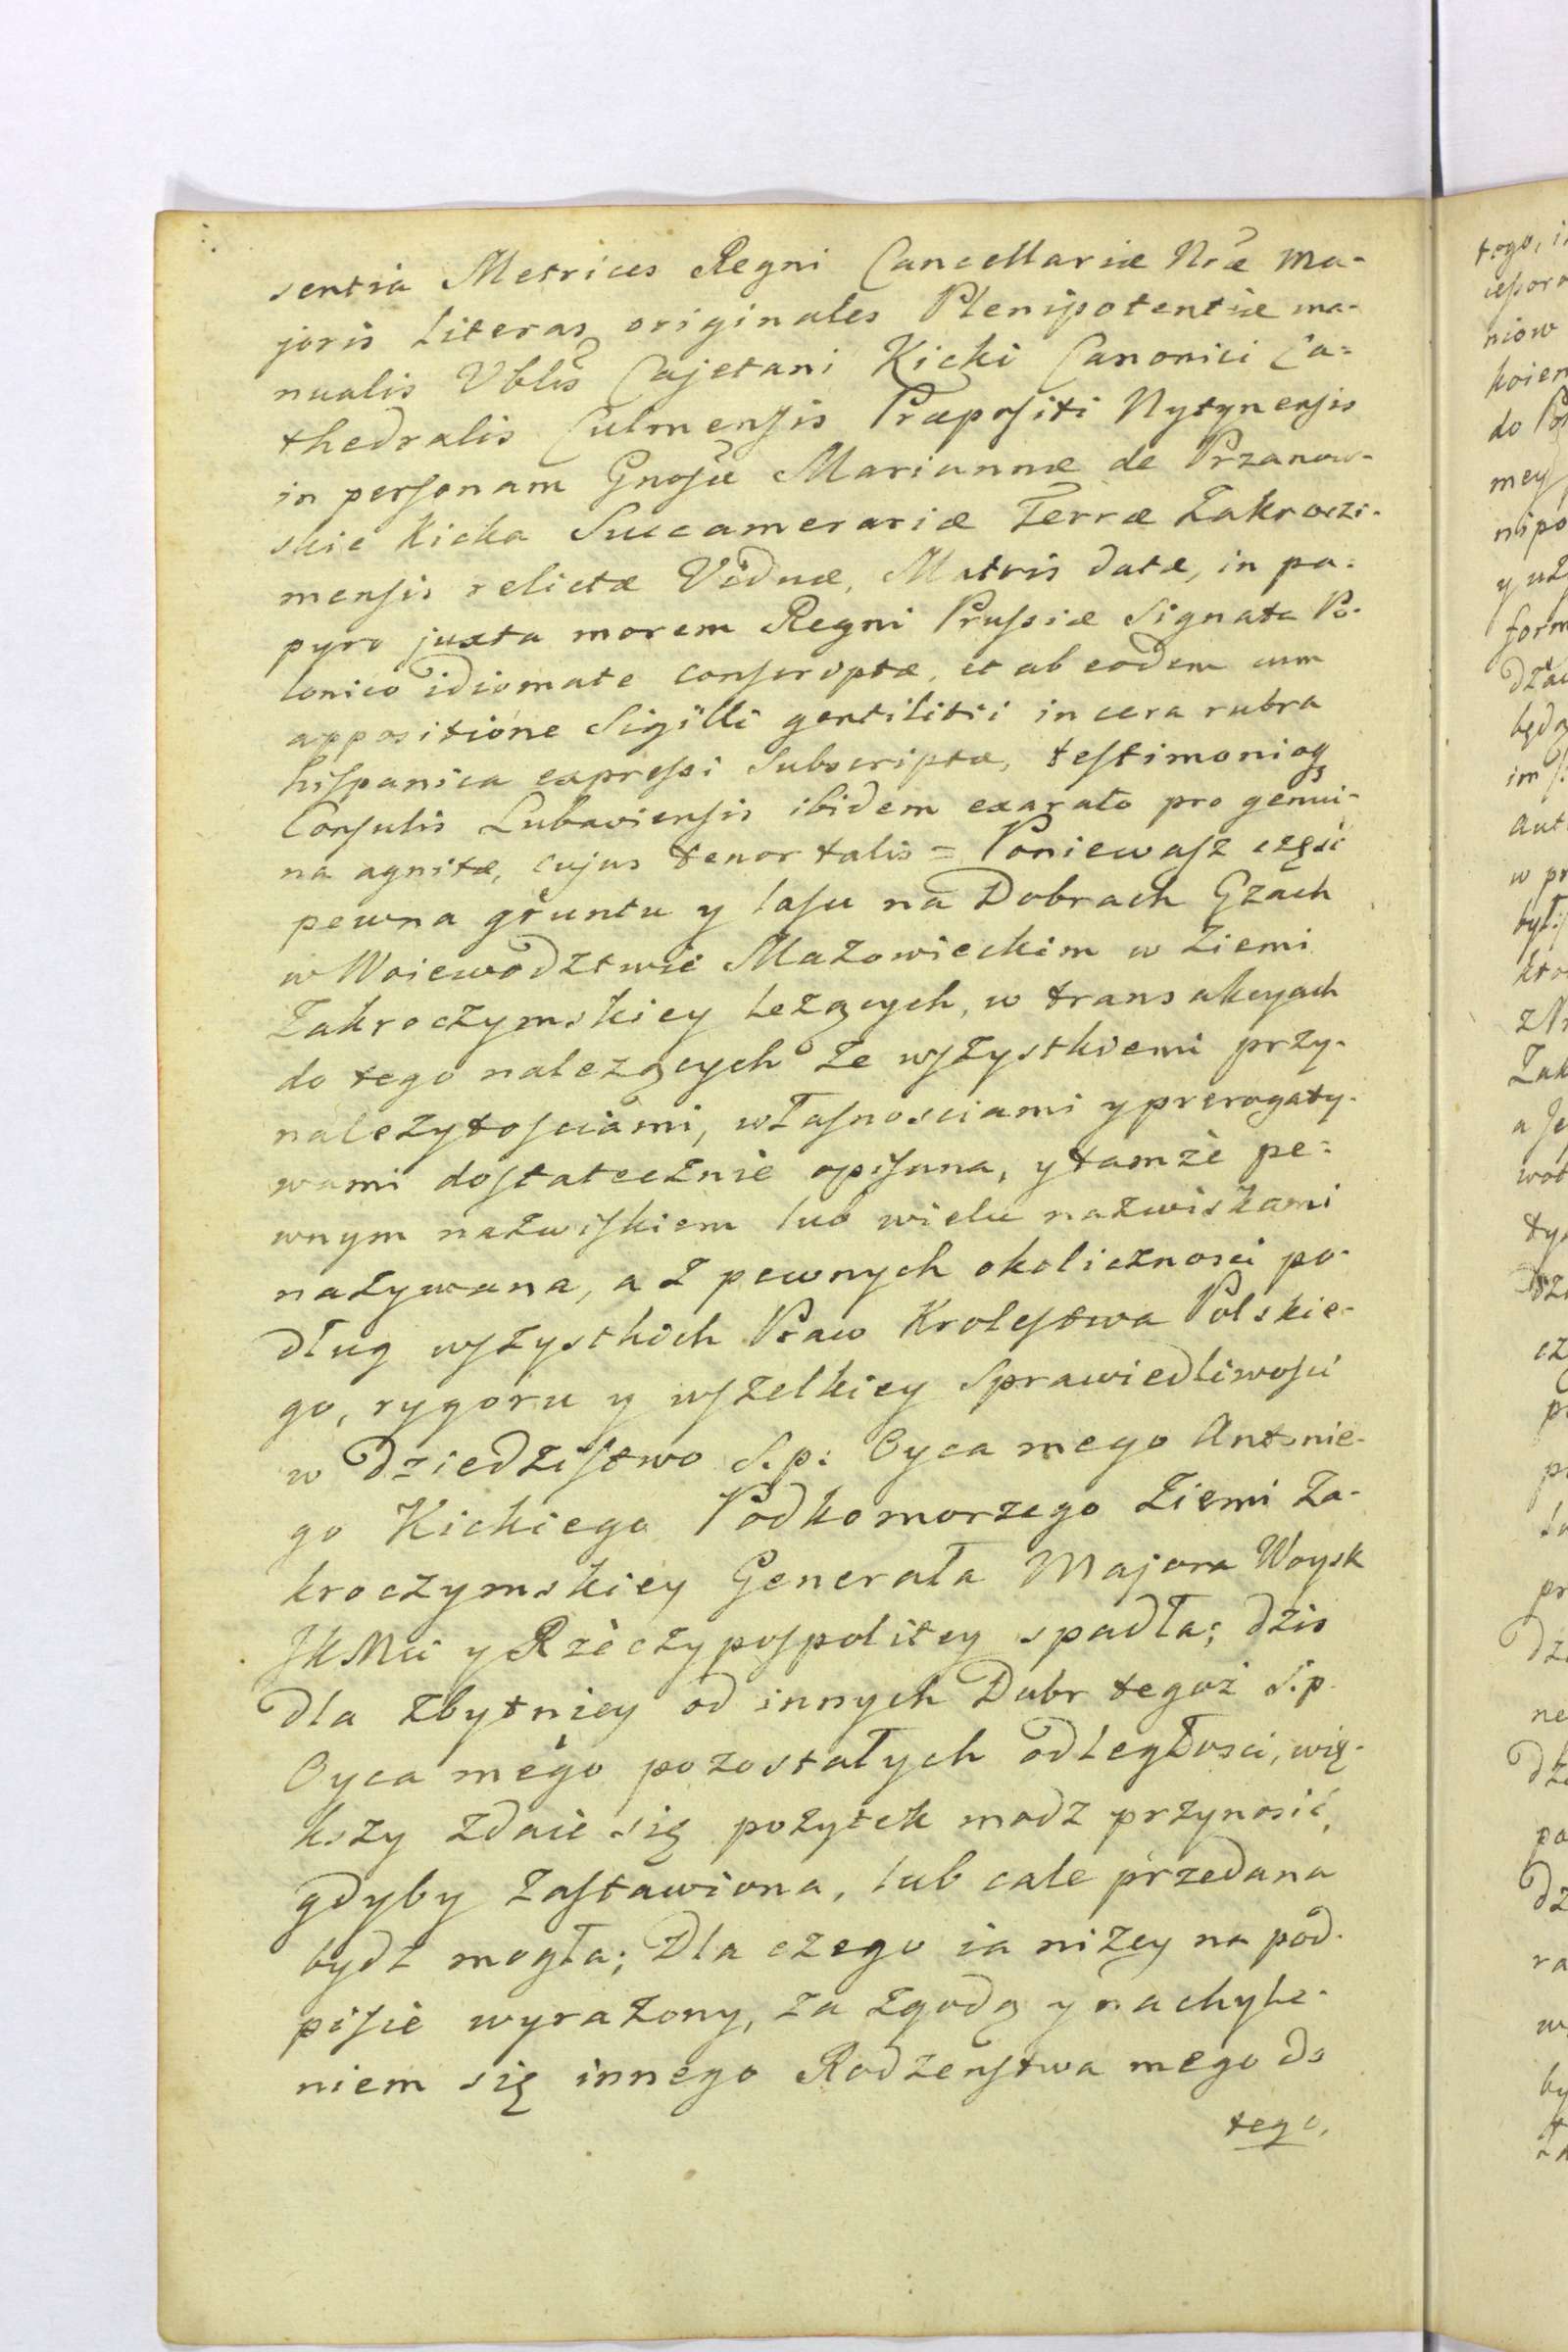 sentia Metrices Regni Cancellariæ Nræ Ma-
joris Literas originales Plenipotentiæ ma-
nualis Vblis Cajetani Kicki Canonici Ca=
thedralis Culmensis Præpositi Nytynensis
in personam Gnosæ Mariannæ de Przanow-
skie Kicka Succamerariæ Terræ Zakroczi-
mensis relictæ Viduæ, Matris datæ, in pa=
pyro juxta morem Regni Prussiæ Signata Po-
lonico idiomate conscriptæ, et ab eodem cum
appositione Sigilli gentilitii in cera rubra
hispanica expressi Subscriptæ, testimonioq
Consulis Lubaviensis ibidem exarato pro genui-
na agnitæ, cujus tenor talis = Poniewasz część
pewna gruntu y lasu na Dobrach Gzach
w Woiewodztwie Mazowieckim w Ziemi
Zakroczymskiey leżących, w transakcyach
do tego należących ze wszystkiemi przy-
należytościami, własnosciami y prerogaty-
wami dostatecznie opisana, y tamże pe=
wnym nazwiskiem lub wielu nazwiskami
nazywana, a z pewnych okoliczności po-
dług wszystkich Praw Krolestwa Polskie-
go, rygoru y wszelkiey Sprawiedliwości
w Dziedzistwo S.p: Oyca mego Antonie-
go Kickiego Podkomorzego Ziemi Za-
kroczymskiey Generała Majora Woysk
JkMci y Rzeczypospolitey spadła; dzis
dla zbytniey od innych Dobr tegoż S.p.
Oyca mego pozostałych odległosci, wię-
kszy zdaie się pożytek modz przynosić,
gdyby zastawiona, lub cale przedana
bydz mogła; Dla czego ia niżey na pod-
pisie wyrażony, za zgodą y nachyle-
niem się innego Rodzeństwa mego do
tego,